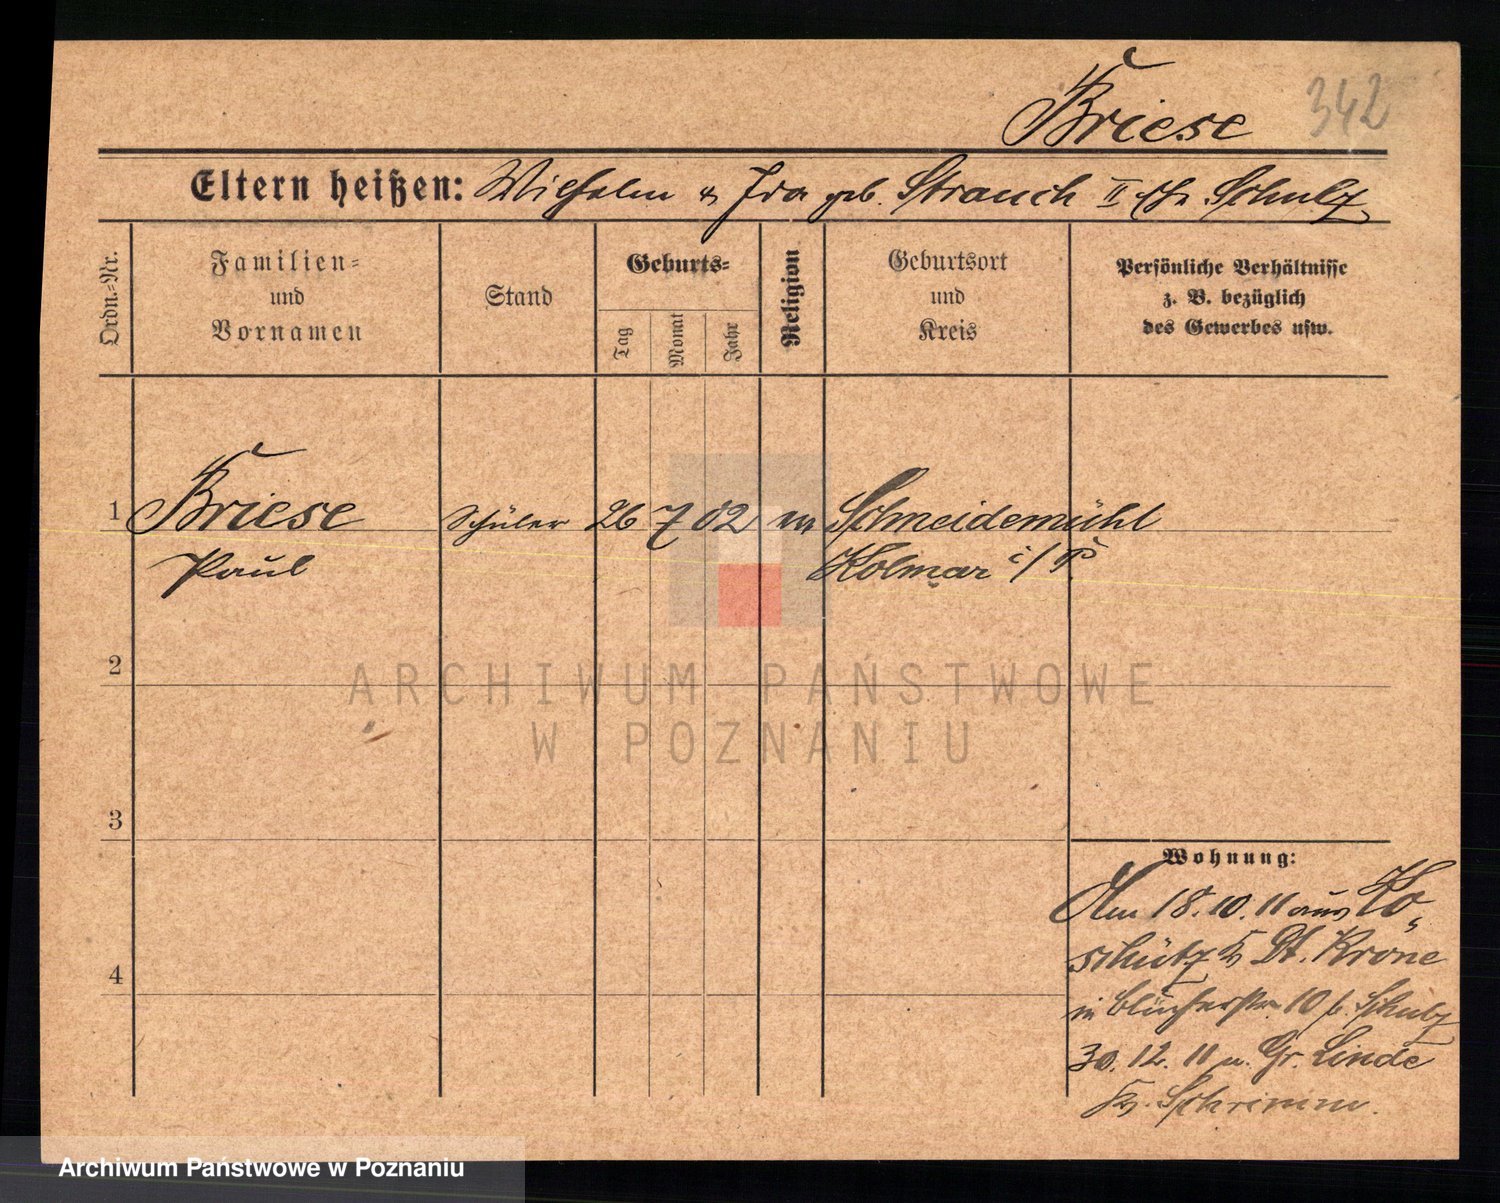 Briese 342
Eltern heißen: Wilhelm & Ida geb. Strauch II Schulz
Ordn.-Nr.
Familien- und Vornamen
Stand
Geburts-
Tag
Monat
Jahr
Religion
Geburtsort und Kreis
Persönliche Verhältnisse z. B. bezüglich des Gewerbes usw.
1 Briese Schüler 26 7 02 Schneidemühl
Paul Kolmar i/P.
2
3
4
Wohnung:
Am 18.10.11 aus Ko-
schütz Dt. Krone
in Blücherstr. 10 b. Schulz
30.12.11 n. Gr. Linde
Kr. Schrimm.
ARCHIWUM PAŃSTWOWE
W POZNANIU
Archiwum Państwowe w Poznaniu